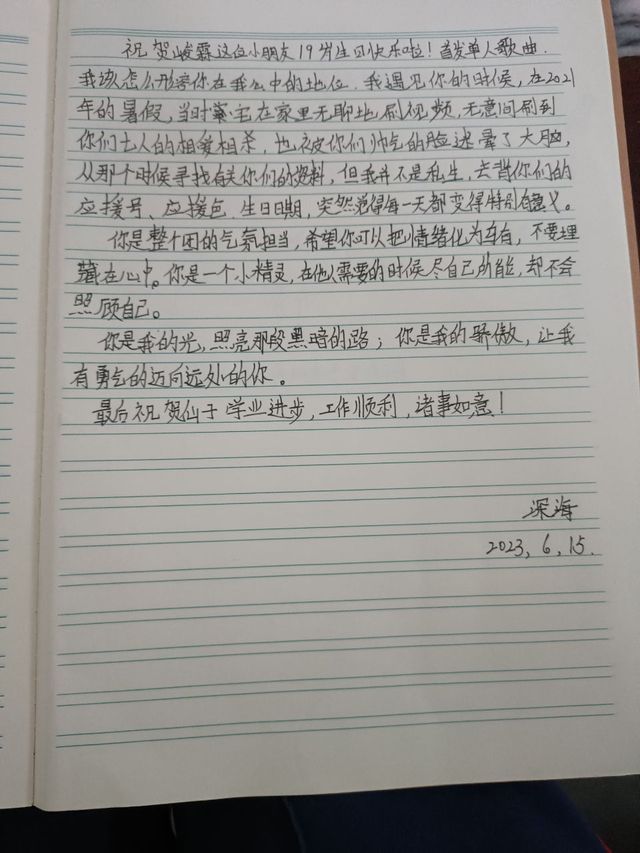 祝贺峻霖这位小朋友19岁生日快乐啦！首发单人歌曲.
我该怎么形容你在我心中的地位,我遇见你的时候,在2021
年的暑假,当时宅在家里无聊地刷视频,无意间刷到
你们七人的相爱相杀,也被你们帅气的脸迷晕了大脑,
从那个时候寻找有关你们的资料,但我并不是私生,去背你们的
应援号、应援色,生日日期,突然觉得每一天都变得特别有意义。
你是整个团的气氛担当,希望你可以把情绪化为乌有,不要埋
藏在心中。你是一个小精灵,在他人需要的时候尽自己所能,却不会
照顾自己。
你是我的光,照亮那段黑暗的路；你是我的骄傲,让我
有勇气的迈向远处的你。
最后祝贺仙子学业进步,工作顺利,诸事如意！
深海
2023,6,15.